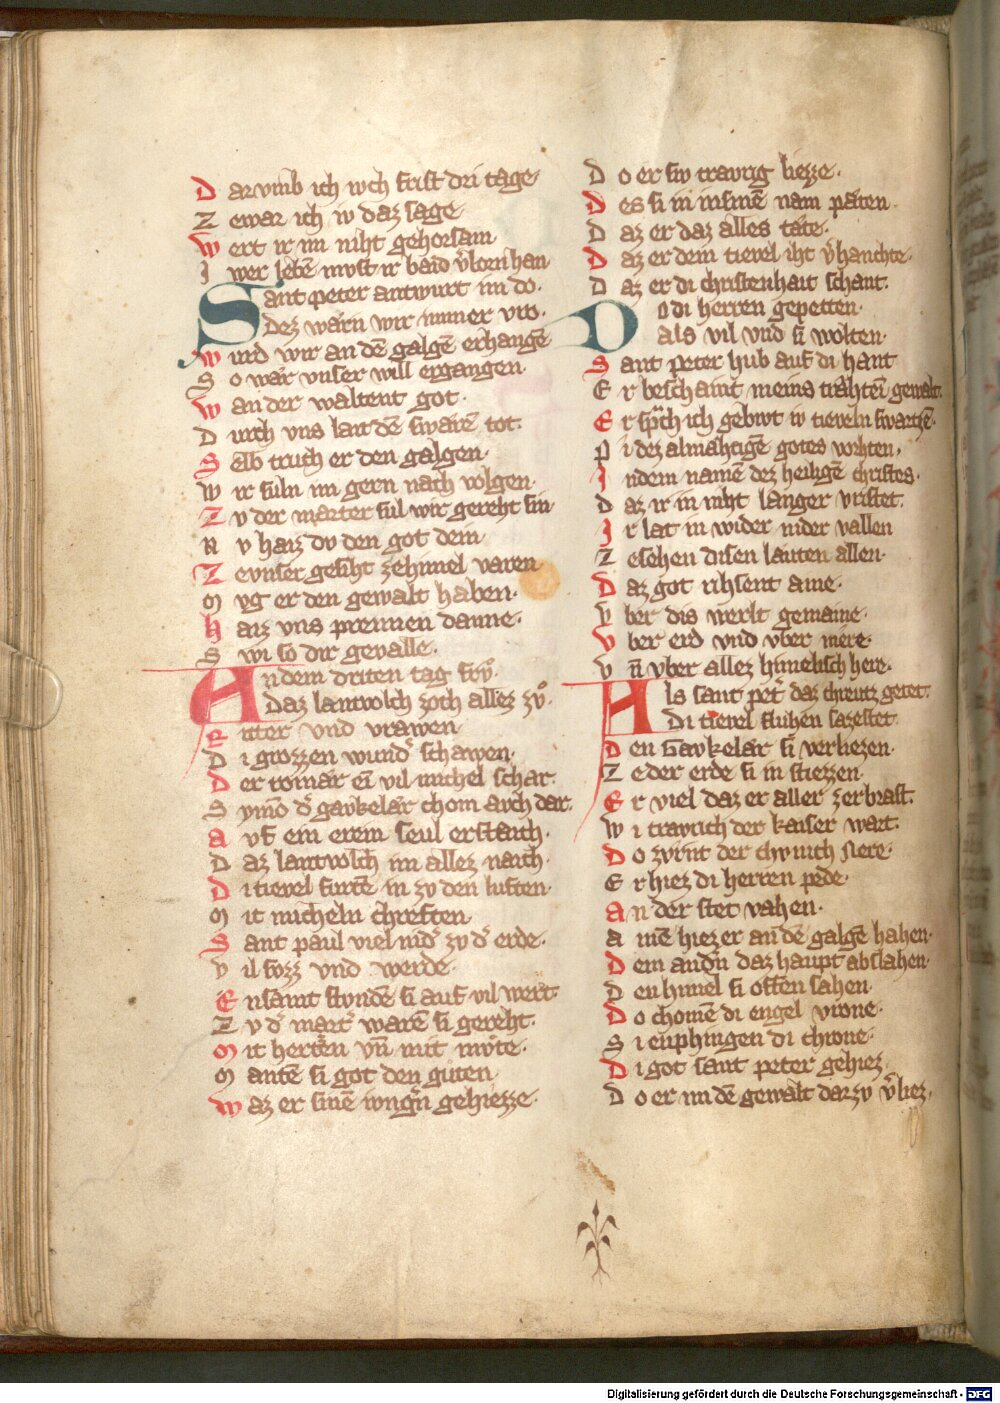 Darvmb ich iv̈ch frist dri tage·
Zewar ich iv daz sage
Wert ir im niht gehorsam
Iwer lebē mv̊st ir baid v̓lorn han
Sant peter antwurt im do·
Dez wârn wir immer vro·
Wurd wir an dē galgē erhangē
So wâr vnser will ergangen·
Wan der waltent got·
Durch vns lait dē swârē tot·
Selb truch er den galgen·
Wir suln im gern nach volgen·
Zv der marter sul wir gereht sin
Nv haiz dv den got dein
Ze vnser gesiht zehimel varen
Mvg er den gewalt haben·
Haiz vns prennen danne·
Swi so dir gevalle·
An dem driten tag frv̊·
Daz lantvolch zoch allez zv̊·
Ritter vnd vrawen
Di grozzen wundˀ schawen·
Der româr eī vil michel schar·
Symō dˀ gavkelâr chom avch dar·
Avf ein erein seul er staich·
Daz lantvolch im allez naich·
Di tievel furtē in zv den luften·
Mit micheln chreften
Sant paul viel nidˀ zv dˀ erde·
Vil svzz vnd werde·
Ensamt stvndē si auf vil wert·
Zv dˀ martˀ warē si gereht·
Mit hertzen vn̄ mit mv̊te·
Mantē si got den gůten
Waz er sinē ivngˀn gehiezze·
Do er siv travrig liezze·
Des si in insinē nam pâten
Daz er daz alles tâte·
Daz er dem tievel iht v̓hanchte·
Daz er di christenhait schant·
Do di herren gepetten·
als vil vnd si wolten·
Sant peter hub auf di hant
Er beschaint meins trâhteī gewalt·
Er sprˀch ich gebivt iv tieveln swartzē·
Pi dez almâhtigē gotes vorhten·
In dem namē dez heiligē christes·
Daz ir in niht langer vristet·
Ir lat in wider nider vallen
Ze sehen disen lâuten allen·
Daz got rihsent aine·
Vber dis werlt gemaine·
Vber erd vnd vber mere·
Vn̄ vber allez himelisch here·
Als sant petˀ daz chreutz getet·
Di tievel fluhen sazestet
Den Gavkelâr si verliezen·
Zeder erde si in stiezzen·
Er viel daz er aller zerbrast·
Wi travrich der kaiser wart·
Do zvrnt der chvnich Nere·
Er hiez di herren pede·
An der stet vahen·
Ainē hiez er an dē galgē hahen·
Dem andˀn daz haupt abslahen·
Den himel si offen sahen·
Do chomē di engel vrone·
Si enphingen di chrone·
Di got sant peter gehiez
Do er im dē gewalt darzv v̓liez·
Digitalisierung gefördert durch die Deutsche Forschungsgemeinschaft - DFG